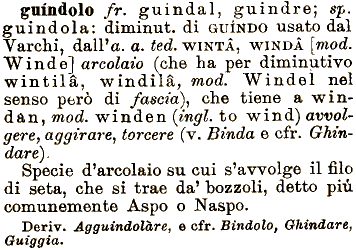 guíndolo fr. guindal, guindre; sp.
guindola: diminut. di GUÍNDO usato dal
Varchi, dall'a. a. ted. WINTÂ, WINDÂ [mod.
Winde] arcolaio (che ha per diminutivo
wintilâ, windilâ, mod. Windel nel
senso però di fascia), che tiene a win-
dan, mod. winden (ingl. to wind) avvol-
gere, aggirare, torcere (v. Binda e cfr. Ghin-
dare).
Specie d'arcolaio su cui s'avvolge il filo
di seta, che si trae da' bozzoli, detto più
comunemente Aspo o Naspo.
Deriv. Agguindolàre, e cfr. Bindolo, Ghindare,
Guiggia.